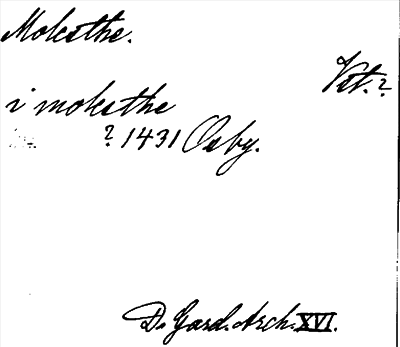 Molesthe.
Vst.?
i molesthe
? 1431 Osby.
D. Gard. Arch. XVI.